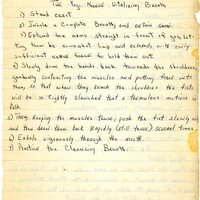 The Yogi Nerve Vitalizing Breath
1) Stand erect
2) Inhale a Complete Breath and retain same.
3) Extend the arms straight in front of you, let-
ting them be somewhat limp and relaxed with only
sufficient nerve force to hold them out.
4) Slowly draw the hands back towards the shoulders,
gradually contracting the muscles and putting force into
them, so that when they reach the shoulders the fists
will be so tightly clenched that a tremulous motion is
felt.
5) Then keeping the muscles tense, push the fist slowly out
and then draw them back rapidly (still tense) several times
6) Exhale vigorously through the mouth.
7) Practice the Cleansing Breath.